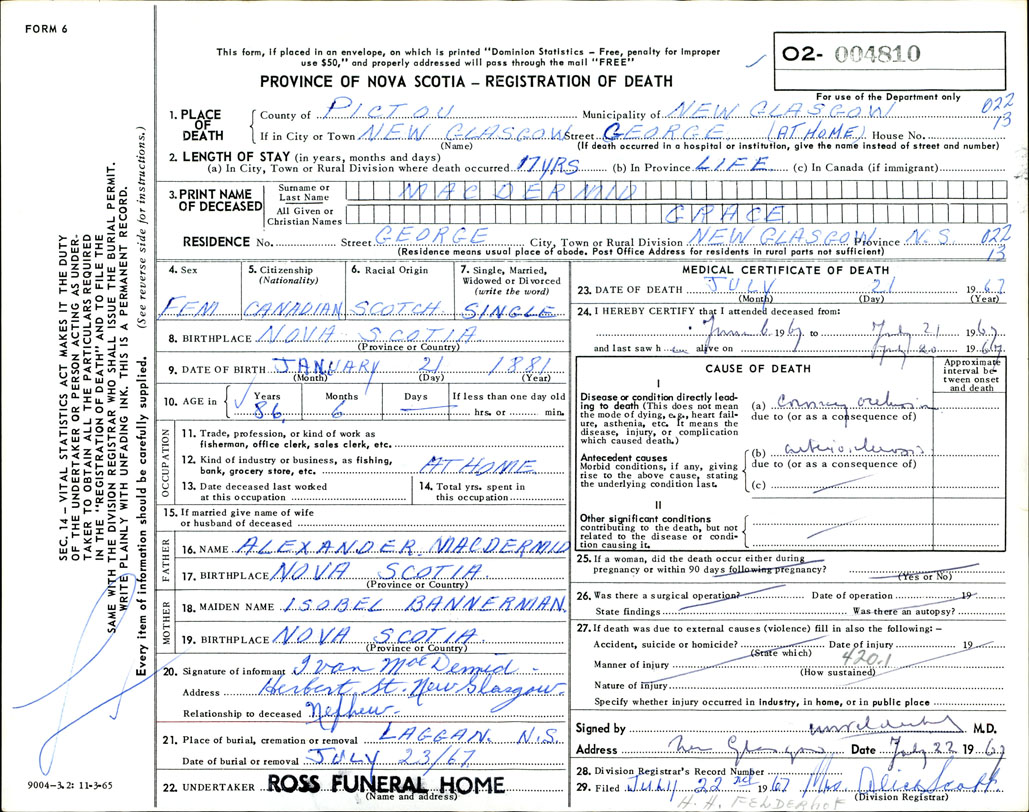 FORM 6
This form, if placed in an envelope, on which is printed "Dominion Statistics – Free, penalty for improper
use $50," and properly addressed will pass through the mail "FREE"
PROVINCE OF NOVA SCOTIA – REGISTRATION OF DEATH
02- 004810
For use of the Department only
022
13
1. PLACE OF DEATH
County of PICTOU Municipality of NEW GLASGOW
If in City or Town NEW GLASGOW Street GEORGE (AT HOME) House No.
(Name) (If death occurred in a hospital or institution, give the name instead of street and number)
2. LENGTH OF STAY (in years, months and days)
(a) In City, Town or Rural Division where death occurred 17 YRS (b) In Province LIFE (c) In Canada (if immigrant)
3. PRINT NAME OF DECEASED
Surname or Last Name MACDERMID
All Given or Christian Names GRACE
RESIDENCE No. Street GEORGE City, Town or Rural Division NEW GLASGOW Province N.S. 022
(Residence means usual place of abode. Post Office Address for residents in rural parts not sufficient) 13
4. Sex
FEM
5. Citizenship
(Nationality)
CANADIAN
6. Racial Origin
SCOTCH
7. Single, Married,
Widowed or Divorced
(write the word)
SINGLE
8. BIRTHPLACE NOVA SCOTIA
(Province or Country)
9. DATE OF BIRTH JANUARY 21 1881
(Month) (Day) (Year)
10. AGE in Years Months Days If less than one day old
86 6 hrs. or min.
OCCUPATION
11. Trade, profession, or kind of work as
fisherman, office clerk, sales clerk, etc.
12. Kind of industry or business, as fishing,
bank, grocery store, etc. AT HOME
13. Date deceased last worked
at this occupation
14. Total yrs. spent in
this occupation
15. If married give name of wife
or husband of deceased
FATHER
16. NAME ALEXANDER MACDERMID
17. BIRTHPLACE NOVA SCOTIA
(Province or Country)
MOTHER
18. MAIDEN NAME ISOBEL BANNERMAN
19. BIRTHPLACE NOVA SCOTIA
(Province or Country)
20. Signature of informant Ivan MacDermid
Address Herbert St. New Glasgow
Relationship to deceased Nephew
21. Place of burial, cremation or removal LAGGAN. N.S.
Date of burial or removal JULY 23/67
22. UNDERTAKER ROSS FUNERAL HOME
(Name and address)
MEDICAL CERTIFICATE OF DEATH
23. DATE OF DEATH JULY 21 1967
(Month) (Day) (Year)
24. I HEREBY CERTIFY that I attended deceased from:
June 6 1967 to July 21 1967
and last saw her alive on July 20 1967
CAUSE OF DEATH
Approximate
interval be-
tween onset
and death
I
Disease or condition directly lead-
ing to death (This does not mean
the mode of dying, e.g., heart fail-
ure, asthenia, etc. It means the
disease, injury, or complication
which caused death.)
(a) Coronary occlusion
due to (or as a consequence of)
Antecedent causes
Morbid conditions, if any, giving
rise to the above cause, stating
the underlying condition last.
(b) arteriosclerosis
due to (or as a consequence of)
(c)
II
Other significant conditions
contributing to the death, but not
related to the disease or condi-
tion causing it.
25. If a woman, did the death occur either during
pregnancy or within 90 days following pregnancy?
(Yes or No)
26. Was there a surgical operation? Date of operation 19
State findings Was there an autopsy?
27. If death was due to external causes (violence) fill in also the following: –
Accident, suicide or homicide? Date of injury 19
(State which)
420.1
Manner of injury
(How sustained)
Nature of injury
Specify whether injury occurred in industry, in home, or in public place
Signed by M.D.
Address New Glasgow Date July 22 1967
28. Division Registrar's Record Number
29. Filed JULY 22nd 1967 Mrs. Alice Scott
(Division Registrar)
H. H. FELDERHOF
SEC. 14 – VITAL STATISTICS ACT MAKES IT THE DUTY
OF THE UNDERTAKER OR PERSON ACTING AS UNDER-
TAKER TO OBTAIN ALL THE PARTICULARS REQUIRED
IN THE "REGISTRATION OF DEATH" AND TO FILE THE
SAME WITH THE DIVISION REGISTRAR WHO SHALL ISSUE THE BURIAL PERMIT.
WRITE PLAINLY WITH UNFADING INK. THIS IS A PERMANENT RECORD.
Every item of information should be carefully supplied. (See reverse side for instructions.)
9004-3.2: 11-3-65